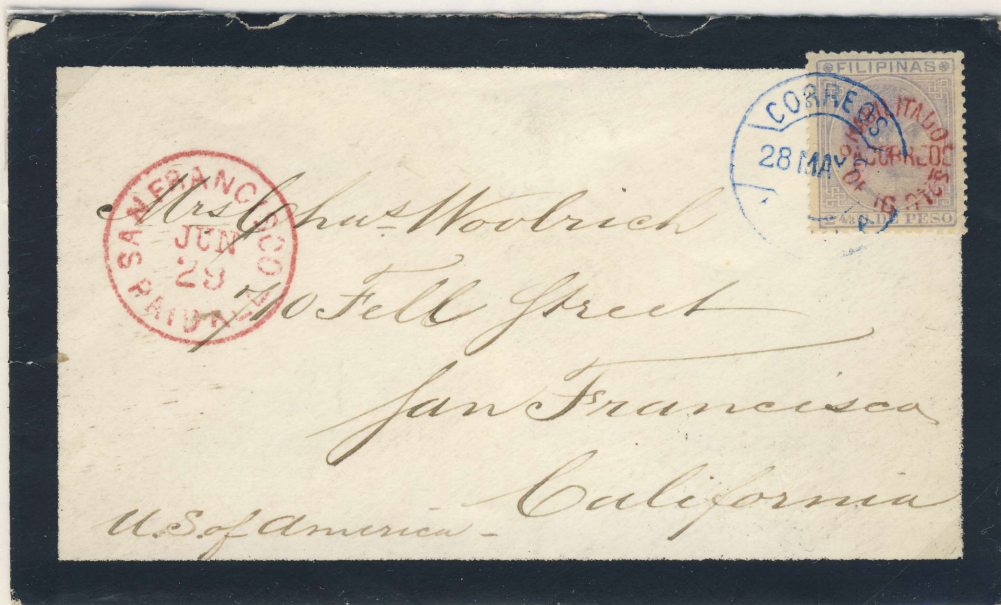 FILIPINAS
CORREOS
28 MAY
HABILITADO
CORREOS
DE PESO
SAN FRANCISCO
JUN
29
PAID ALL
Mrs Chas Woolrich
710 Fell Street
San Francisco
California
U.S. of America